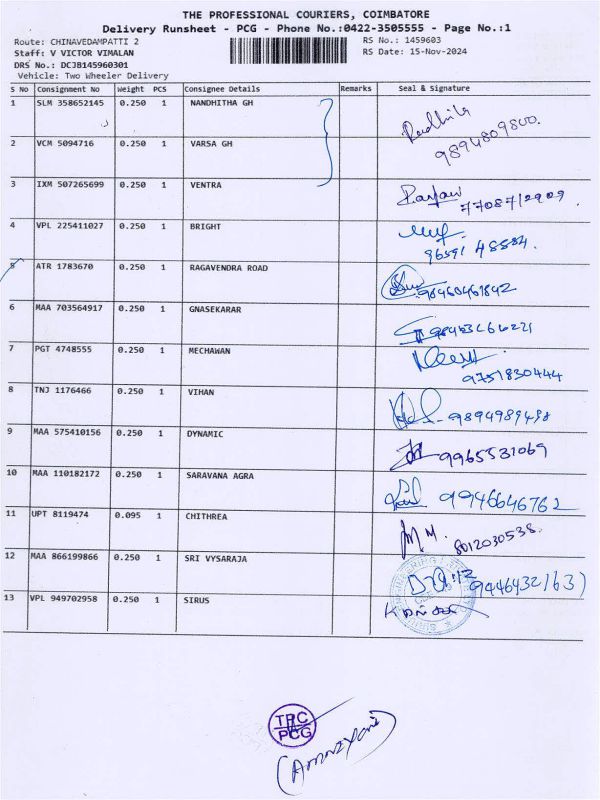 THE PROFESSIONAL COURIERS, COIMBATORE
Delivery Runsheet - PCG - Phone No.:0422-3505555 - Page No.:1
Route: CHINAVEDAMPATTI 2 RS No.: 1459603
Staff: V VICTOR VIMALAN RS Date: 15-Nov-2024
DRS No.: DCJB145960301
Vehicle: Two Wheeler Delivery
S No Consignment No Weight PCS Consignee Details Remarks Seal & Signature
1 SLM 358652145 0.250 1 NANDHITHA GH Radhika
9894809800.
2 VCM 5094716 0.250 1 VARSA GH
3 IXM 507265699 0.250 1 VENTRA 7708712909.
4 VPL 225411027 0.250 1 BRIGHT
96591 48884.
5 ATR 1783670 0.250 1 RAGAVENDRA ROAD
6 MAA 703564917 0.250 1 GNASEKARAR
7 PGT 4748555 0.250 1 MECHAWAN
9751830444
8 TNJ 1176466 0.250 1 VIHAN 9894989498
9 MAA 575410156 0.250 1 DYNAMIC 9965531069
10 MAA 110182172 0.250 1 SARAVANA AGRA 9946646762
11 UPT 8119474 0.095 1 CHITHREA M. 8012030538.
12 MAA 866199866 0.250 1 SRI VYSARAJA
13 VPL 949702958 0.250 1 SIRUS
TPC
PCG